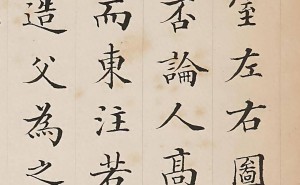 左右圖
否論人高
而東注若
造父為之